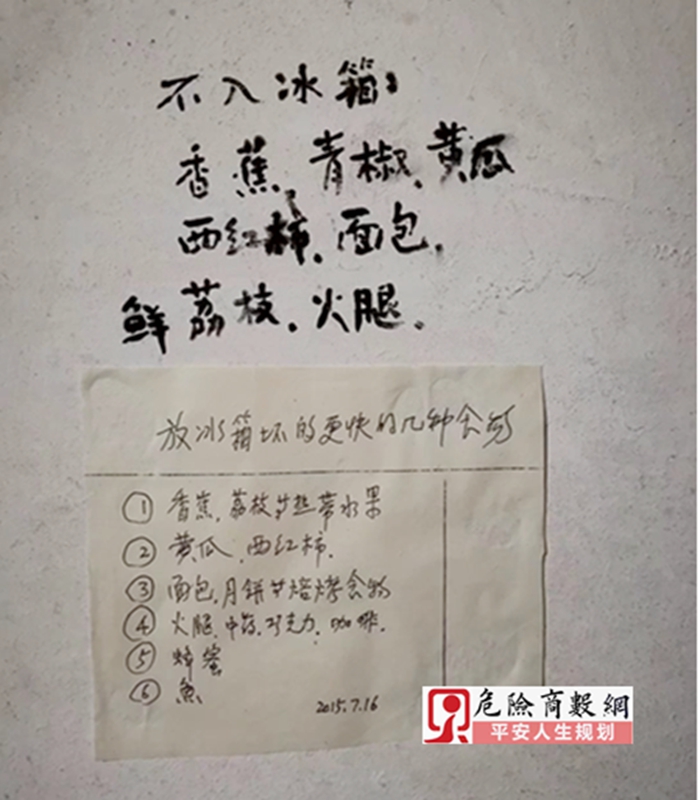 不入冰箱:
香蕉、青椒、黄瓜
西红柿、面包、
鲜荔枝、火腿。
放冰箱坏的更快的几种食物
① 香蕉、荔枝等热带水果
② 黄瓜、西红柿.
③ 面包、月饼等焙烤食物
④ 火腿、中药、巧克力、咖啡.
⑤ 蜂蜜
⑥ 鱼
2015.7.16
危險商數網
平安人生规划